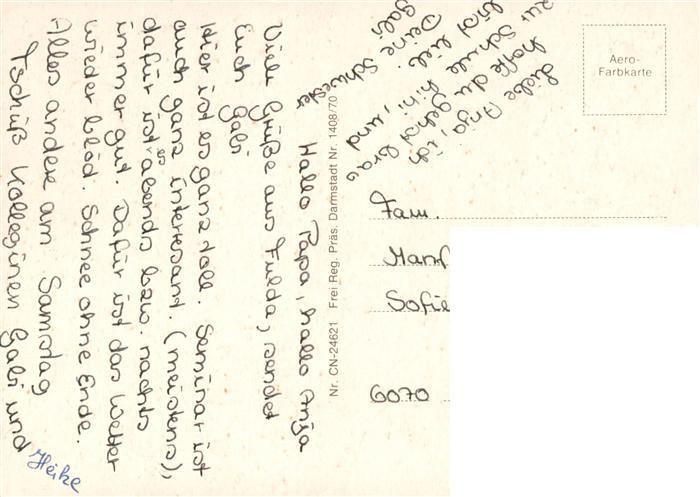 Hallo Papa, hallo Anja
Viele Grüße aus Fulda, sendet
Euch Gabi
Hier ist es ganz toll. Seminar ist
auch ganz interresant. (meistens),
dafür ist es abends bzw. nachts
immer gut. Dafür ist das Wetter
wieder blöd. Schnee ohne Ende.
Alles andere am Samstag
Tschüß Kolleginen Gabi und
Heike
Liebe Anja, ich
hoffe du gehst brav
zur Schule h.h., und
bist lieb.
Deine Schwester
Gabi
Nr. CN-24621 Frei Reg. Präs. Darmstadt Nr. 1408/70
Aero-
Farbkarte
Fam.
Manf
Sofie
6070